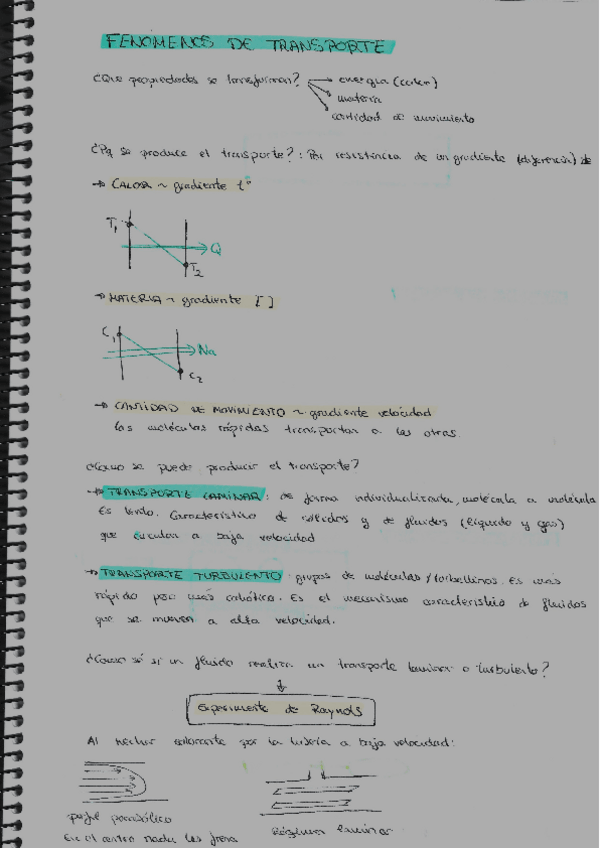 FENÓMENOS DE TRANSPORTE
¿Que propiedades se transforman? → energía (calor)
→ materia
→ cantidad de movimiento
¿Pq se produce el transporte?: Por resistencia de un gradiente (diferencia) de
→ CALOR ~ gradiente tª
T1
Q
T2
→ MATERIA ~ gradiente [ ]
C1
Na
C2
→ CANTIDAD DE MOVIMIENTO ~ gradiente velocidad
las moléculas rápidas transportan a las otras.
¿Como se puede producir el transporte?
→ TRANSPORTE LAMINAR: de forma individualizada, molécula a molécula
Es lento. Característico de sólidos y de fluidos (líquido y gas)
que circulan a baja velocidad
→ TRANSPORTE TURBULENTO: grupos de moléculas/torbellinos. Es más
rápido pero más caótico. Es el mecanismo característico de fluidos
que se mueven a alta velocidad.
¿Como sé si un fluido realiza un transporte laminar o turbulento?
Experimento de Raynols
Al colorante por la tubería a baja velocidad:
perfil parabólico
Régimen laminar
En el centro nada las frena